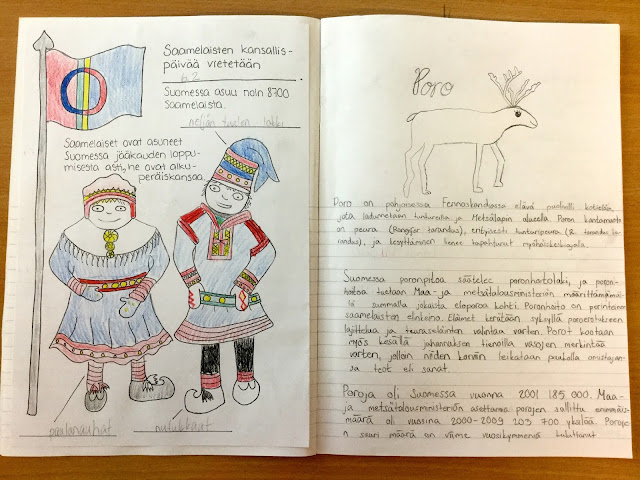 Saamelaisten kansallis-
päivää vietetään
6.2
Suomessa asuu noin 8700
Saamelaista.
neljän tuulen lakki
Saamelaiset ovat asuneet
Suomessa jääkauden loppu-
misesta asti, he ovat alku-
peräiskansaa.
paulanauhat
nutukkaat
Poro
Poro on pohjoisessa Fennoskandiassa elävä puolivilli kotieläin,
jota laidunnetaan tuntureilla ja Metsälapin alueella. Poron kantamuoto
on peura (Rangifer tarandus), erityisesti tunturipeura (R. tarandus ta-
randus), ja kesyttäminen lienee tapahtunut myöhäiskeskiajalla.
Suomessa poronpitoa säätelee poronhoitolaki, ja poron-
hoitoa tuetaan Maa- ja metsätalousministeriön määrittämäl-
lä summalla jokaista eloporoa kohti. Poronhoito on perinteinen
saamelaisten elinkeino. Eläimet kerätään syksyllä poroerotukseen
lajittelua ja teuraseläinten valintaa varten. Porot kootaan
myös kesällä juhannuksen tienoilla vasojen merkintää
varten, jolloin niiden korviin leikataan puukolla omistajan-
sa
Poroja oli Suomessa vuonna 2001 185 000. Maa-
ja metsätalousministeriön asettama porojen sallittu enimmäis-
määrä oli vuosina 2000-2009 203 700 yksilöä. Poroje-
n suuri määrä on viime vuosikymmeninä